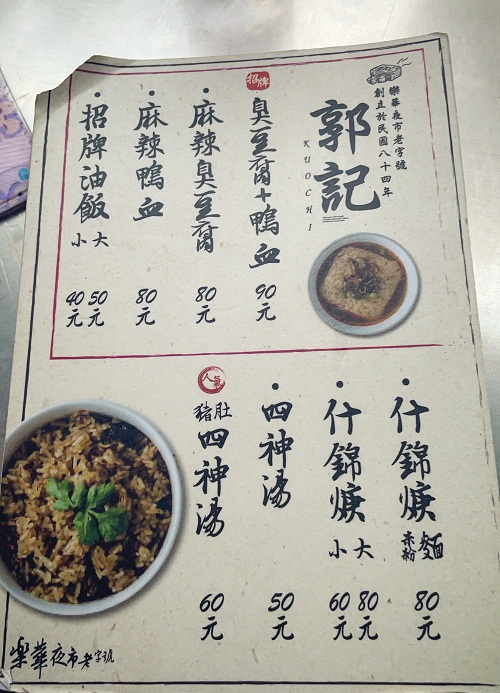 樂華夜市老字號
創立於民國八十四年
郭記
KUO CHI
招牌
臭豆腐+鴨血 90元
麻辣臭豆腐 80元
麻辣鴨血 80元
招牌油飯 大 50元
小 40元
什錦焿 麵 米粉 80元
什錦焿 大 80元
小 60元
四神湯 50元
人氣
豬肚四神湯 60元
樂華夜市老字號